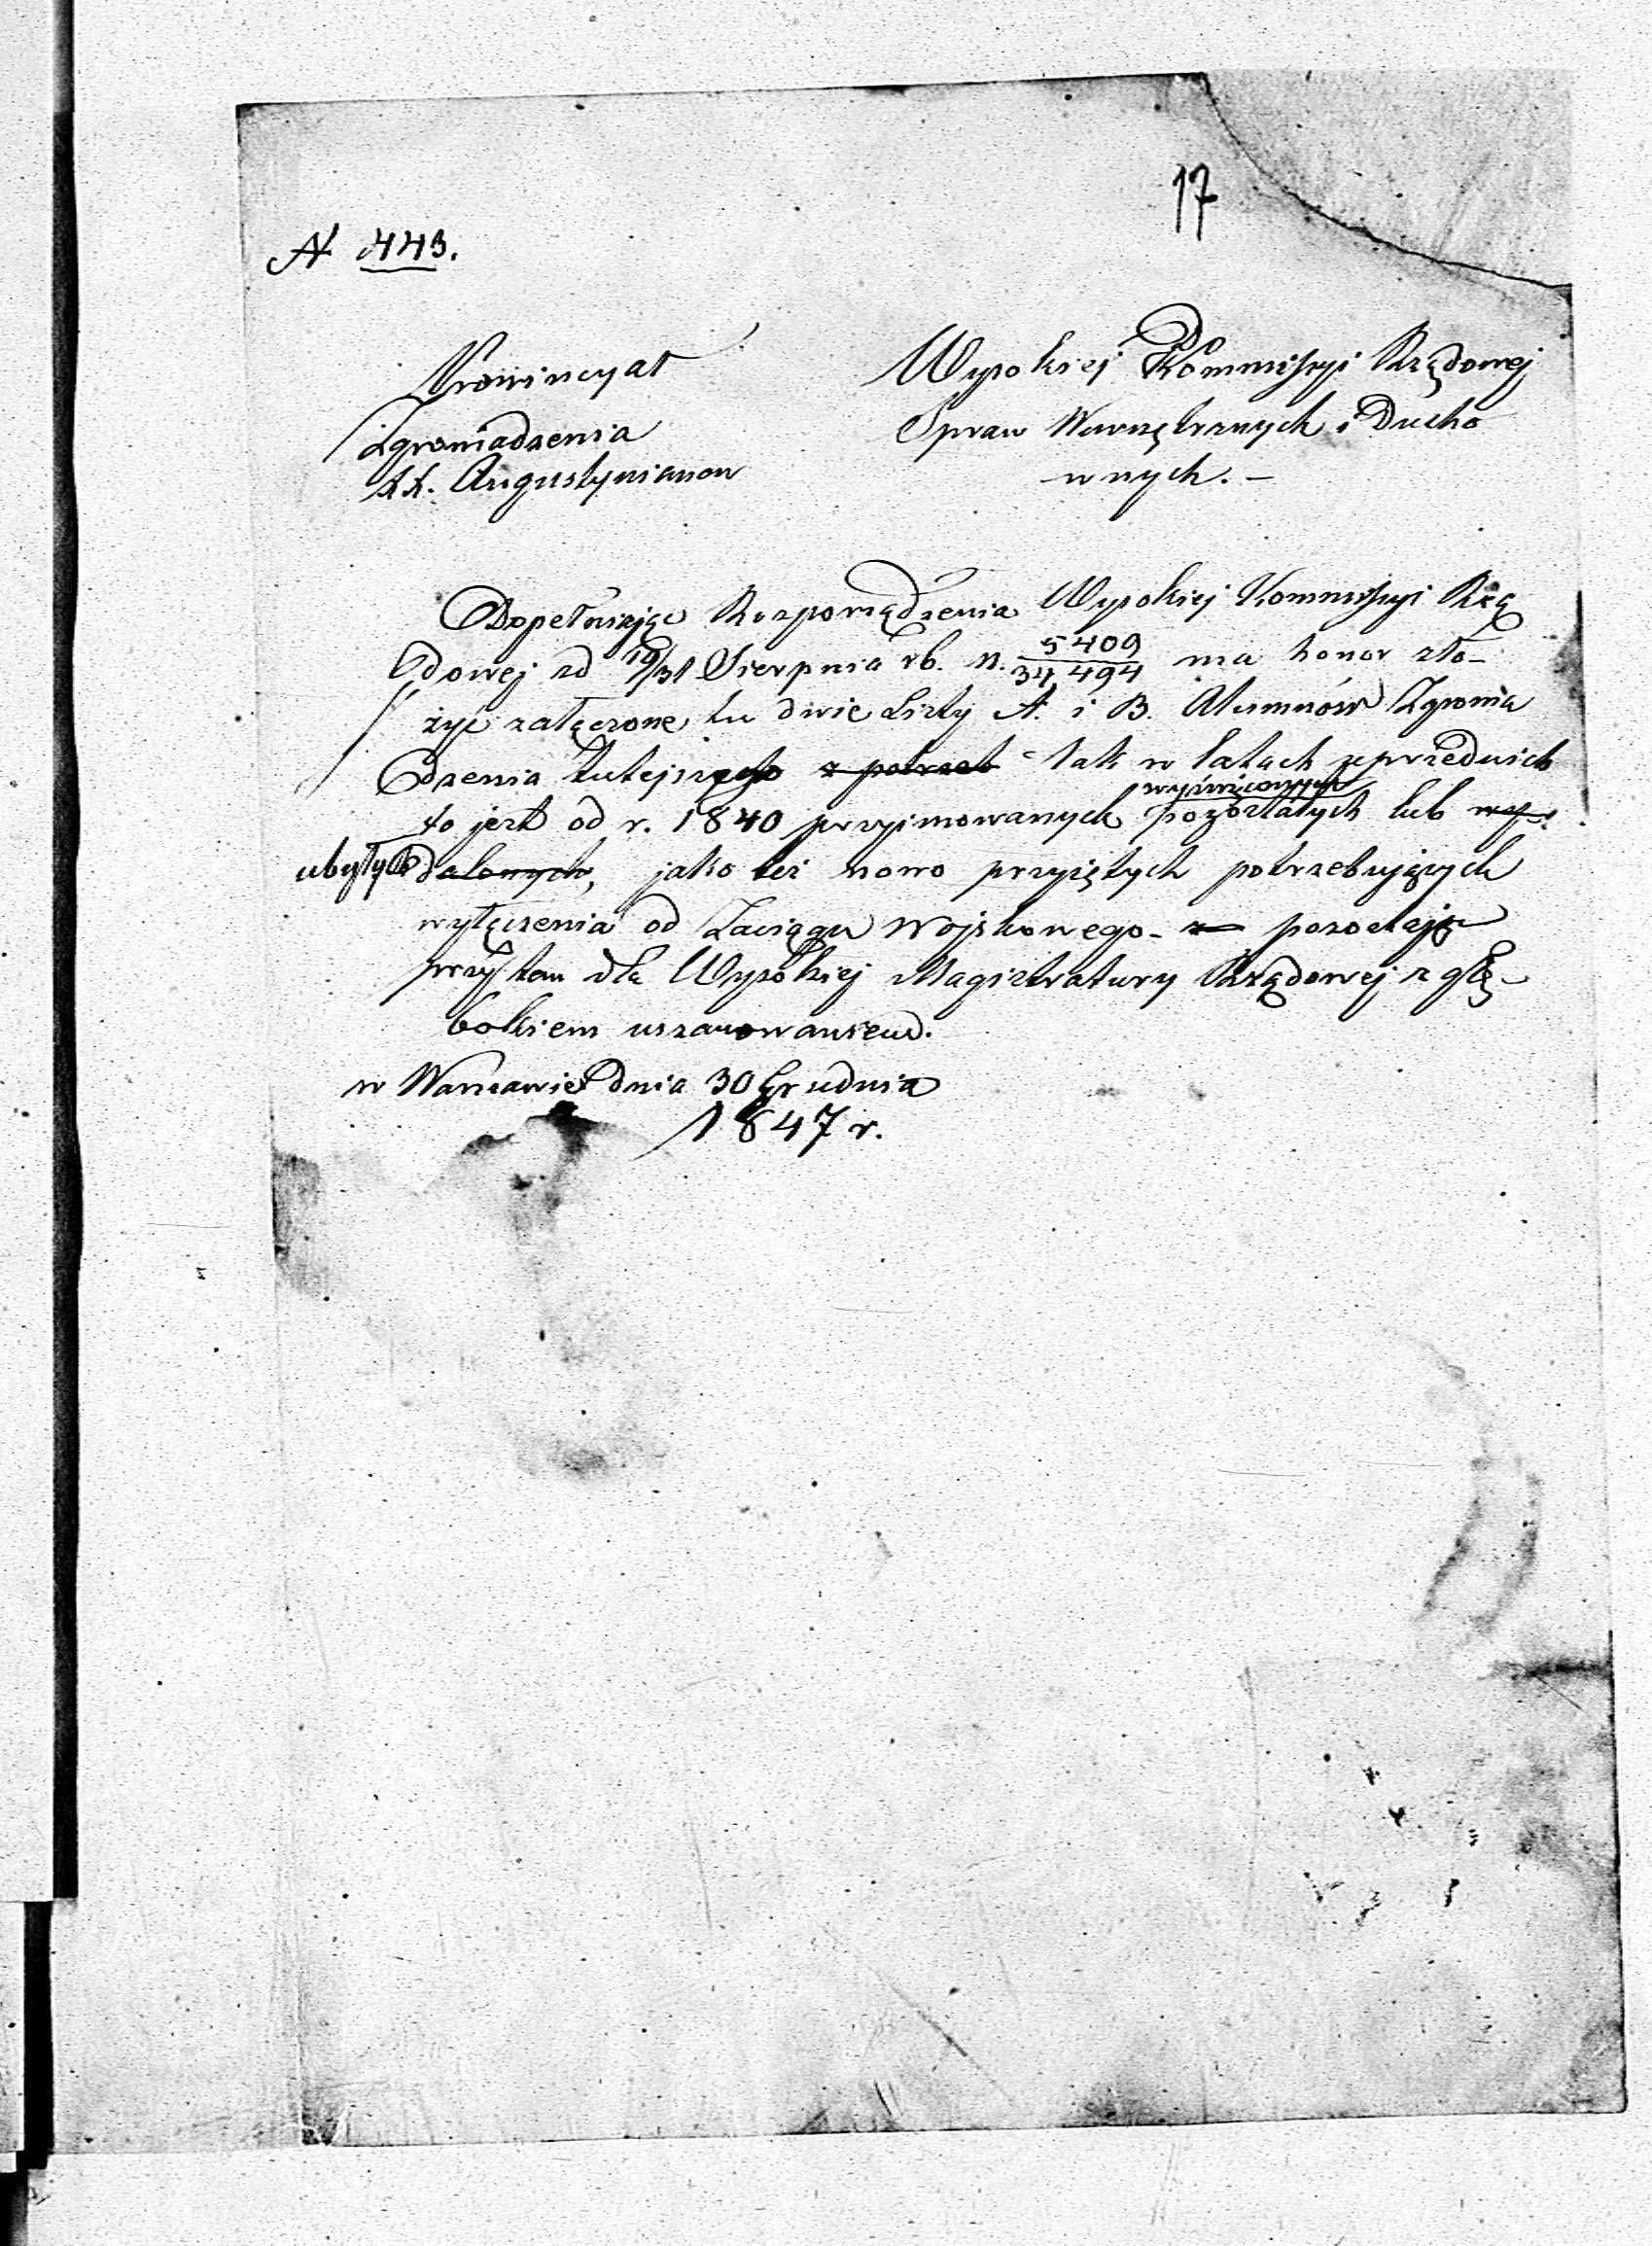 17
N 443.
Prowincyał
Zgromadzenia
XX. Augustynianow
Do
Wysokiej Kommissyi Rządowej
Spraw Wewnętrznych i Ducho
wnych. –
Dopełniając Rozporządzenia Wysokiej Kommissyi Rzą
dowej zd 19/31 Sierpnia rb. N. 5409/34,494 ma honor zło-
żyć załączone tu dwie Listy A. i B. Alumnów Zgroma
dzenia tutejszego z potrzeb tak w latach uprzednich
wyświęconych
to jest od r. 1840 przyimowanych pozostałych lub wy-
ubyłych dalonych, jako też nowo przyiętych potrzebujących
wyłączenia od Zaciągu Wojskowego – pozostaję
przytem dla Wysokiej Magistratury Rządowej z głę-
bokiem uszanowaniem.
w Warszawie dnia 30 Grudnia
1847 r.